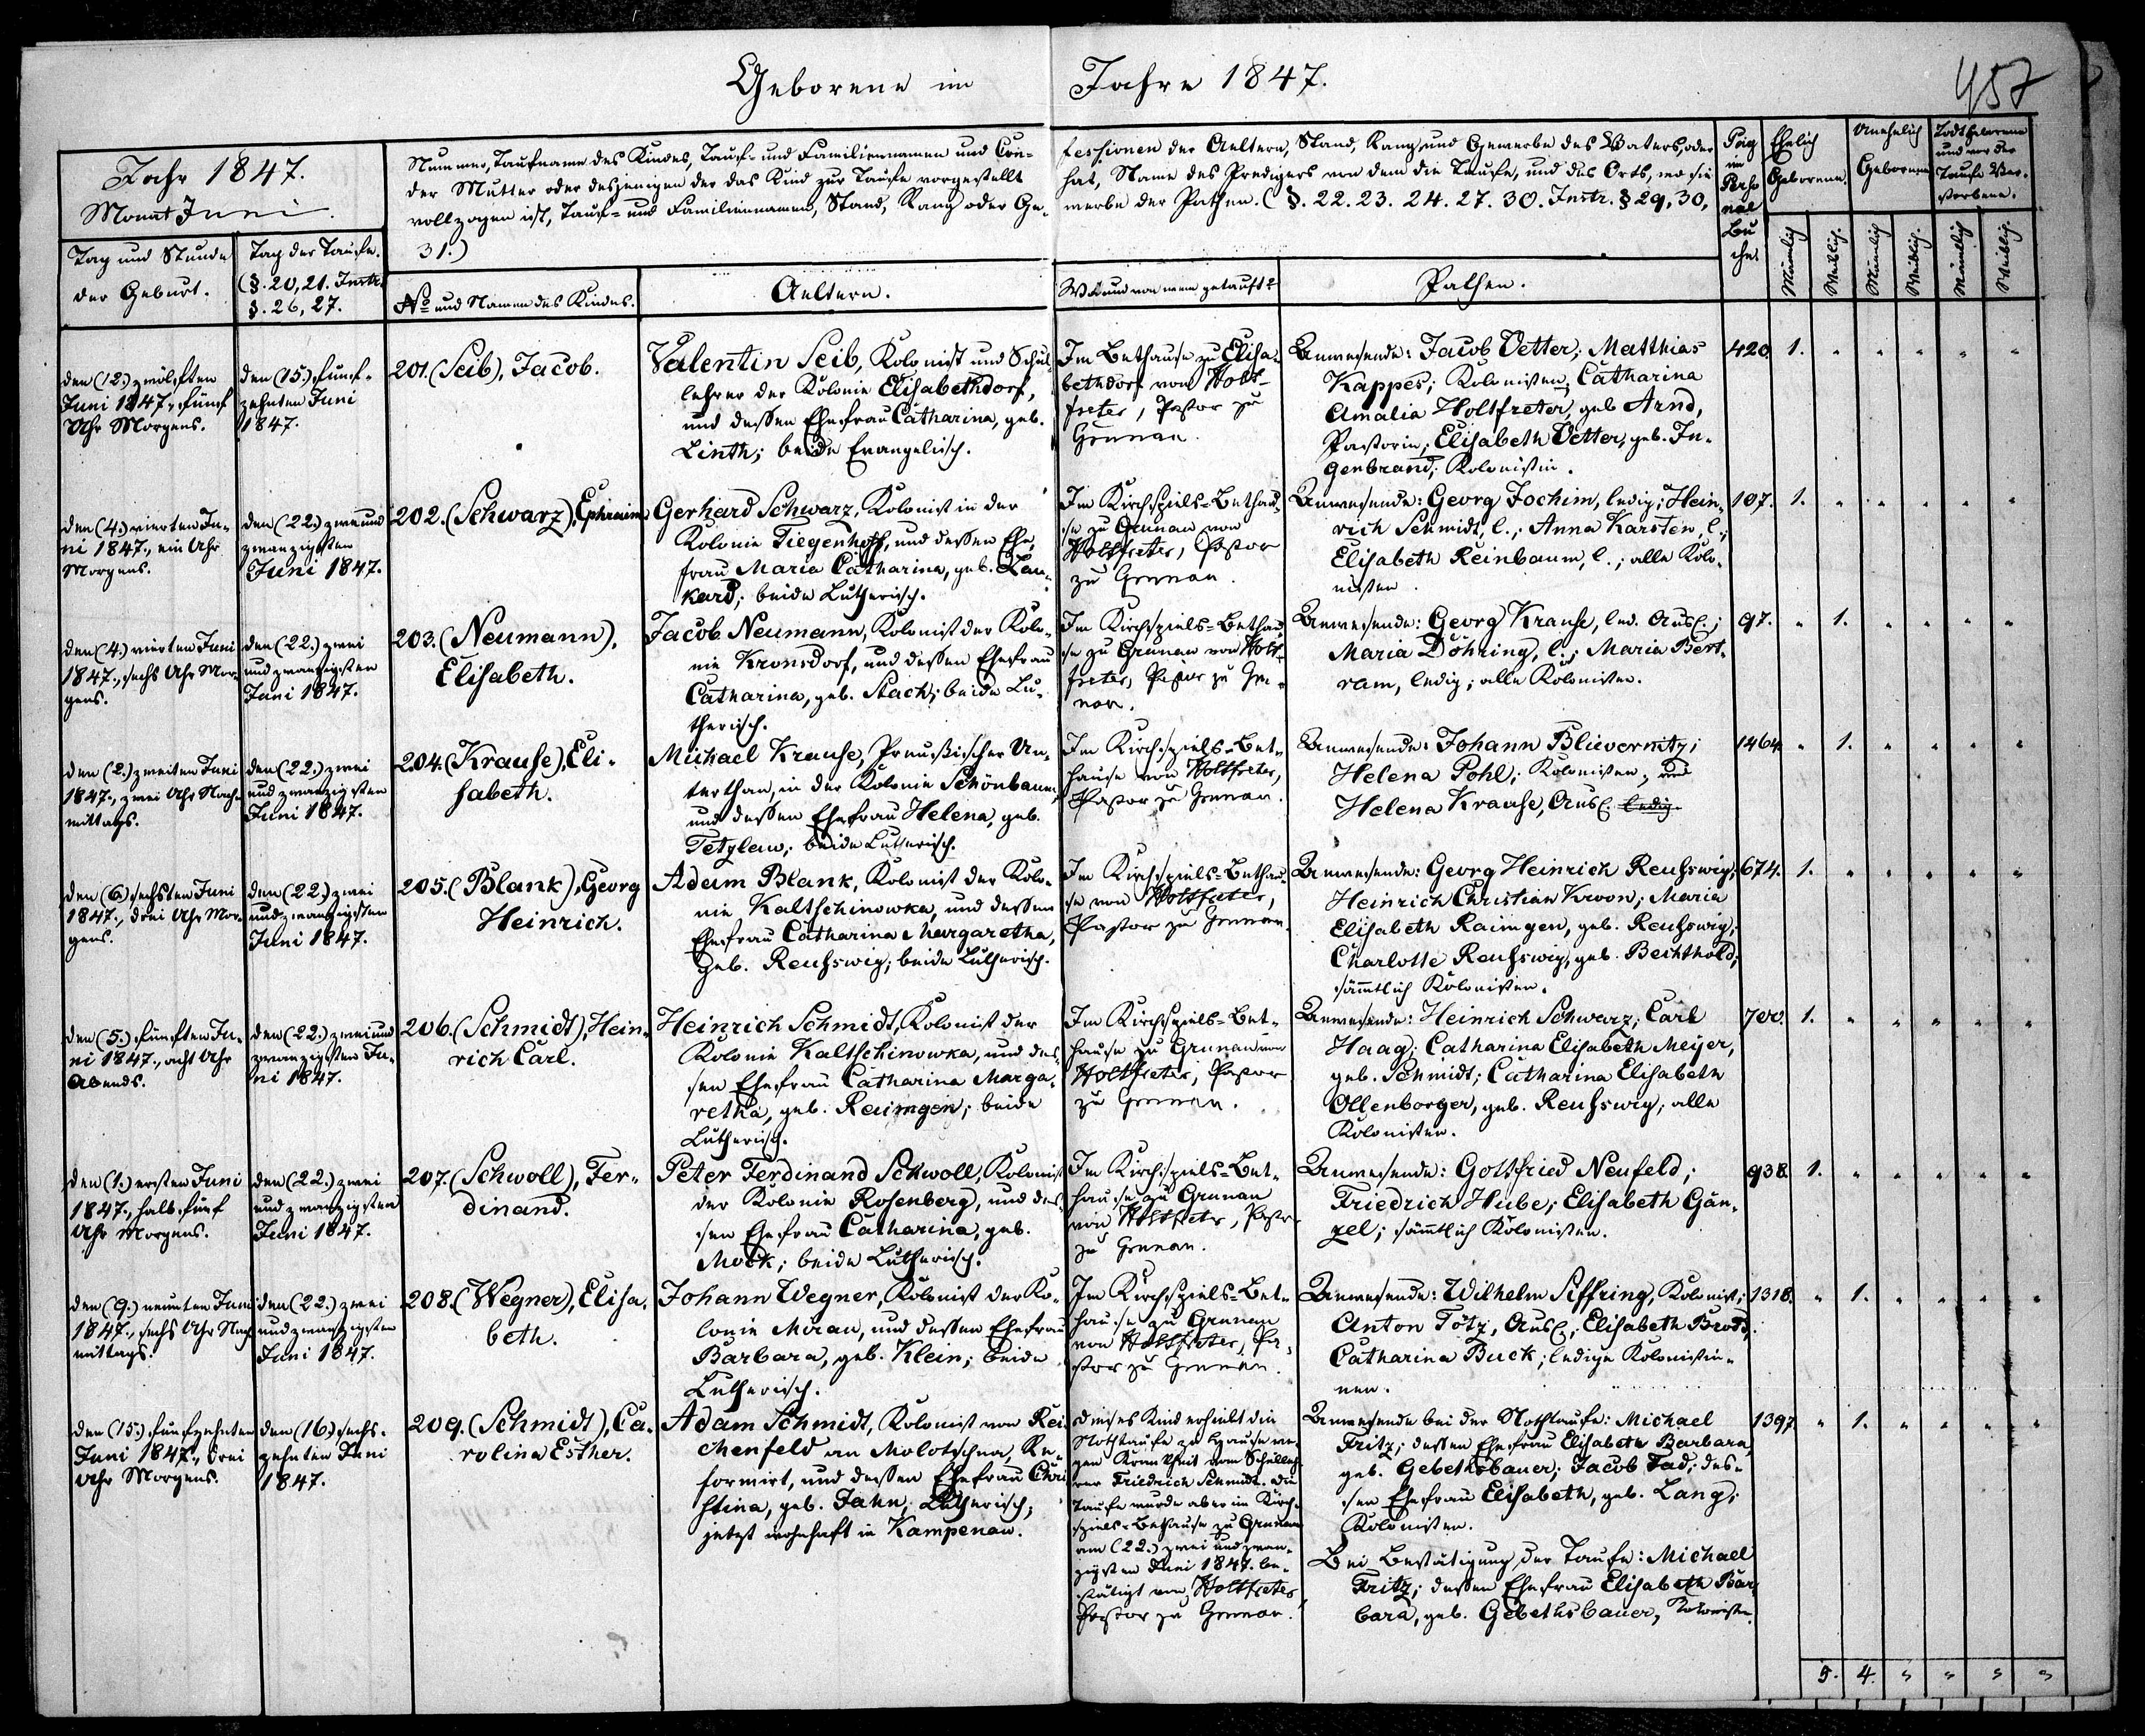 Geborene im Jahre 1847.
457
Jahr 1847.
Monat Juni.
Nummer, Taufname des Kindes, Tauf- und Familiennamen und Con-
der Mutter oder desjenigen der das Kind zur Taufe vorgestellt
vollzogen ist, Tauf- und Familiennamen, Stand, Rang oder Ge-
31.)
fessionen der Aeltern, Stand, Rang und Gewerbe des Vaters, oder
hat, Name des Predigers von dem die Taufe, und des Orts, wo sie
werbe der Pathen. (§. 22. 23. 24. 27. 30. Instr. § 29, 30,
im
Perso
nal
Bu
che.
Ehelich
Geborene.
Unehelich
Geborene
Todtgeborene
und vor der
Taufe Ver-
storbene.
Tag und Stunde
der Geburt.
Tag der Taufe.
(§. 20, 21. Instr.
§. 26, 27.
No und Namen des Kindes.
Aeltern.
Wo und von wem getauft?
Pathen.
Männlich
Weiblich.
Männlich
Weiblich.
Männlich
Weiblich.
den (12.) zwölften
Juni 1847., fünf
Uhr Morgens.
den (15.) fünf-
zehnten Juni
1847.
201. (Seib), Jacob.
Valentin Seib, Kolonist und Schul-
lehrer der Kolonie Elisabethdorf,
und dessen Ehefrau Catharina, geb.
Linth; beide Evangelisch.
Im Bethause zu Elisa-
bethdorf von Holt-
freter, Pastor zu
Grunau.
Anwesende: Jacob Vetter; Matthias
Kappes; Kolonisten; Catharina
Amalia Holtfreter, geb Arnd,
Pastorin; Elisabeth Vetter, geb. In-
genbrand; Kolonistin.
420. 1. " " " " "
den (4.) vierten Ju-
ni 1847., ein Uhr
Morgens.
den (22.) zwei und
zwanzigsten
Juni 1847.
202. (Schwarz), Ephraim
Gerhard Schwarz, Kolonist in der
Kolonie Tiegenhoff, und dessen Ehe-
frau Maria Catharina, geb. Lan-
kard; beide Lutherisch.
Im Kirchspiels-Bethau-
se zu Grunau von
Holtfreter, Pastor
zu Grunau.
Anwesende: Georg Jochim, ledig; Hein-
rich Schmidt, l.; Anna Karsten, l.;
Elisabeth Reinbaum, l.; alle Kolo-
nisten.
107. 1. " " " " "
den (4.) vierten Juni
1847., sechs Uhr Mor-
gens.
den (22.) zwei
und zwanzigsten
Juni 1847.
203. (Neumann),
Elisabeth.
Jacob Neumann, Kolonist der Kolo-
nie Kronsdorf, und dessen Ehefrau
Catharina, geb. Stach; beide Lu-
therisch.
Im Kirchspiels-Bethau-
se zu Grunau von Holt-
freter, Pastor zu Gru-
nau.
Anwesende: Georg Krause, led. Ausl.;
Maria Döhring, l.; Maria Bert-
ram, ledig; alle Kolonisten.
97. " 1. " " " "
den (2.) zweiten Juni
1847., zwei Uhr Nach-
mittags.
den (22.) zwei
und zwanzigsten
Juni 1847.
204. (Krause), Eli-
sabeth.
Michael Krause, Preußischer Un-
terthan, in der Kolonie Schönbaum,
und dessen Ehefrau Helena, geb.
Tetzlaw; beide Lutherisch.
Im Kirchspiels-Bet-
hause von Holtfreter,
Pastor zu Grunau.
Anwesende: Johann Blievernitz;
Helena Pohl; Kolonisten; und
Helena Krause, Ausl. ledig.
1464. " 1. " " " "
den (6.) sechsten Juni
1847., drei Uhr Mor-
gens.
den (22.) zwei
und zwanzigsten
Juni 1847.
205. (Blank), Georg
Heinrich.
Adam Blank, Kolonist der Kolo-
nie Kaltschinowka, und dessen
Ehefrau Catharina Margaretha,
geb. Reuhswig; beide Lutherisch.
Im Kirchspiels-Bethau-
se von Holtfreter,
Pastor zu Grunau.
Anwesende: Georg Heinrich Reuhswig;
Heinrich Christian Kroon; Maria
Elisabeth Raimgen, geb. Reuhswig;
Charlotte Reuhswig, geb. Bechthold;
sämmtlich Kolonisten.
674. 1. " " " " "
den (5.) fünften Ju-
ni 1847., acht Uhr
Abends.
den (22.) zwei und
zwanzigsten Ju-
ni 1847.
206. (Schmidt), Hein-
rich Carl.
Heinrich Schmidt, Kolonist der
Kolonie Kaltschinowka, und des-
sen Ehefrau Catharina Marga-
retha, geb. Raimgen; beide
Lutherisch.
Im Kirchspiels-Bet-
hause zu Grunau von
Holtfreter, Pastor
zu Grunau.
Anwesende: Heinrich Schwarz; Carl
Haag; Catharina Elisabeth Meyer,
geb. Schmidt; Catharina Elisabeth
Ollenborger, geb. Reuhswig; alle
Kolonisten.
700. 1. " " " " "
den (1.) ersten Juni
1847., halb fünf
Uhr Morgens.
den (22.) zwei
und zwanzigsten
Juni 1847.
207. (Schwoll), Fer-
dinand.
Peter Ferdinand Schwoll, Kolonist
der Kolonie Rosenberg, und des-
sen Ehefrau Catharina, geb.
Mock; beide Lutherisch.
Im Kirchspiels-Bet-
hause zu Grunau
von Holtfreter, Pastor
zu Grunau.
Anwesende: Gottfried Neufeld;
Friedrich Hube; Elisabeth Gän-
zel; sämmtlich Kolonisten.
938. 1. " " " " "
den (9.) neunten Juni
1847., sechs Uhr Nach-
mittags.
den (22.) zwei
und zwanzigsten
Juni 1847.
208. (Wegner), Elisa-
beth.
Johann Wegner, Kolonist der Ko-
lonie Mirau, und dessen Ehefrau
Barbara, geb. Klein; beide
Lutherisch.
Im Kirchspiels-Bet-
hause zu Grunau
von Holtfreter, Pa-
stor zu Grunau.
Anwesende: Wilhelm Siffring, Kolonist;
Anton Tötz, Ausl.; Elisabeth Brods;
Catharina Buck; ledige Kolonistin-
nen.
1318. " 1. " " " "
den (15.) funfzehnten
Juni 1847., drei
Uhr Morgens.
den (16.) sechs-
zehnten Juni
1847.
209. (Schmidt), Ca-
rolina Esther.
Adam Schmidt, Kolonist von Rei-
chenfeld an Molotschna, Re-
formirt, und dessen Ehefrau Chri-
stina, geb. Jahn, Lutherisch;
jetzt wohnhaft in Kampenau.
Dieses Kind erhielt die
Nothtaufe zu Hause we-
gen Krankheit vom Schulleh-
rer Friedrich Schmidt. Die
Taufe wurde aber im Kirch-
spiels-Bethause zu Grunau
am (22.) zwei und zwan-
zigsten Juni 1847. be-
stätigt von Holtfreter
Pastor zu Grunau.
Anwesende bei der Nothtaufe: Michael
Fritz; dessen Ehefrau Elisabeth Barbara,
geb. Gebethsbauer; Jacob Tad; des-
sen Ehefrau Elisabeth, geb. Lang;
Kolonisten.
Bei Bestätigung der Taufe: Michael
Fritz; dessen Ehefrau Elisabeth Bar-
bara, geb. Gebethsbauer, Kolonisten.
1397. " 1. " " " "
5. 4. " " " "